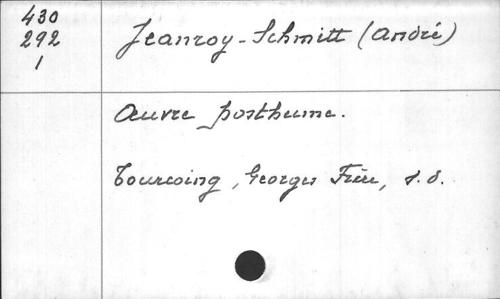 430
292
1
Jeanroy-Schmitt (André)
Œuvre posthume.
Tourcoing, Georges Frère, s.d.